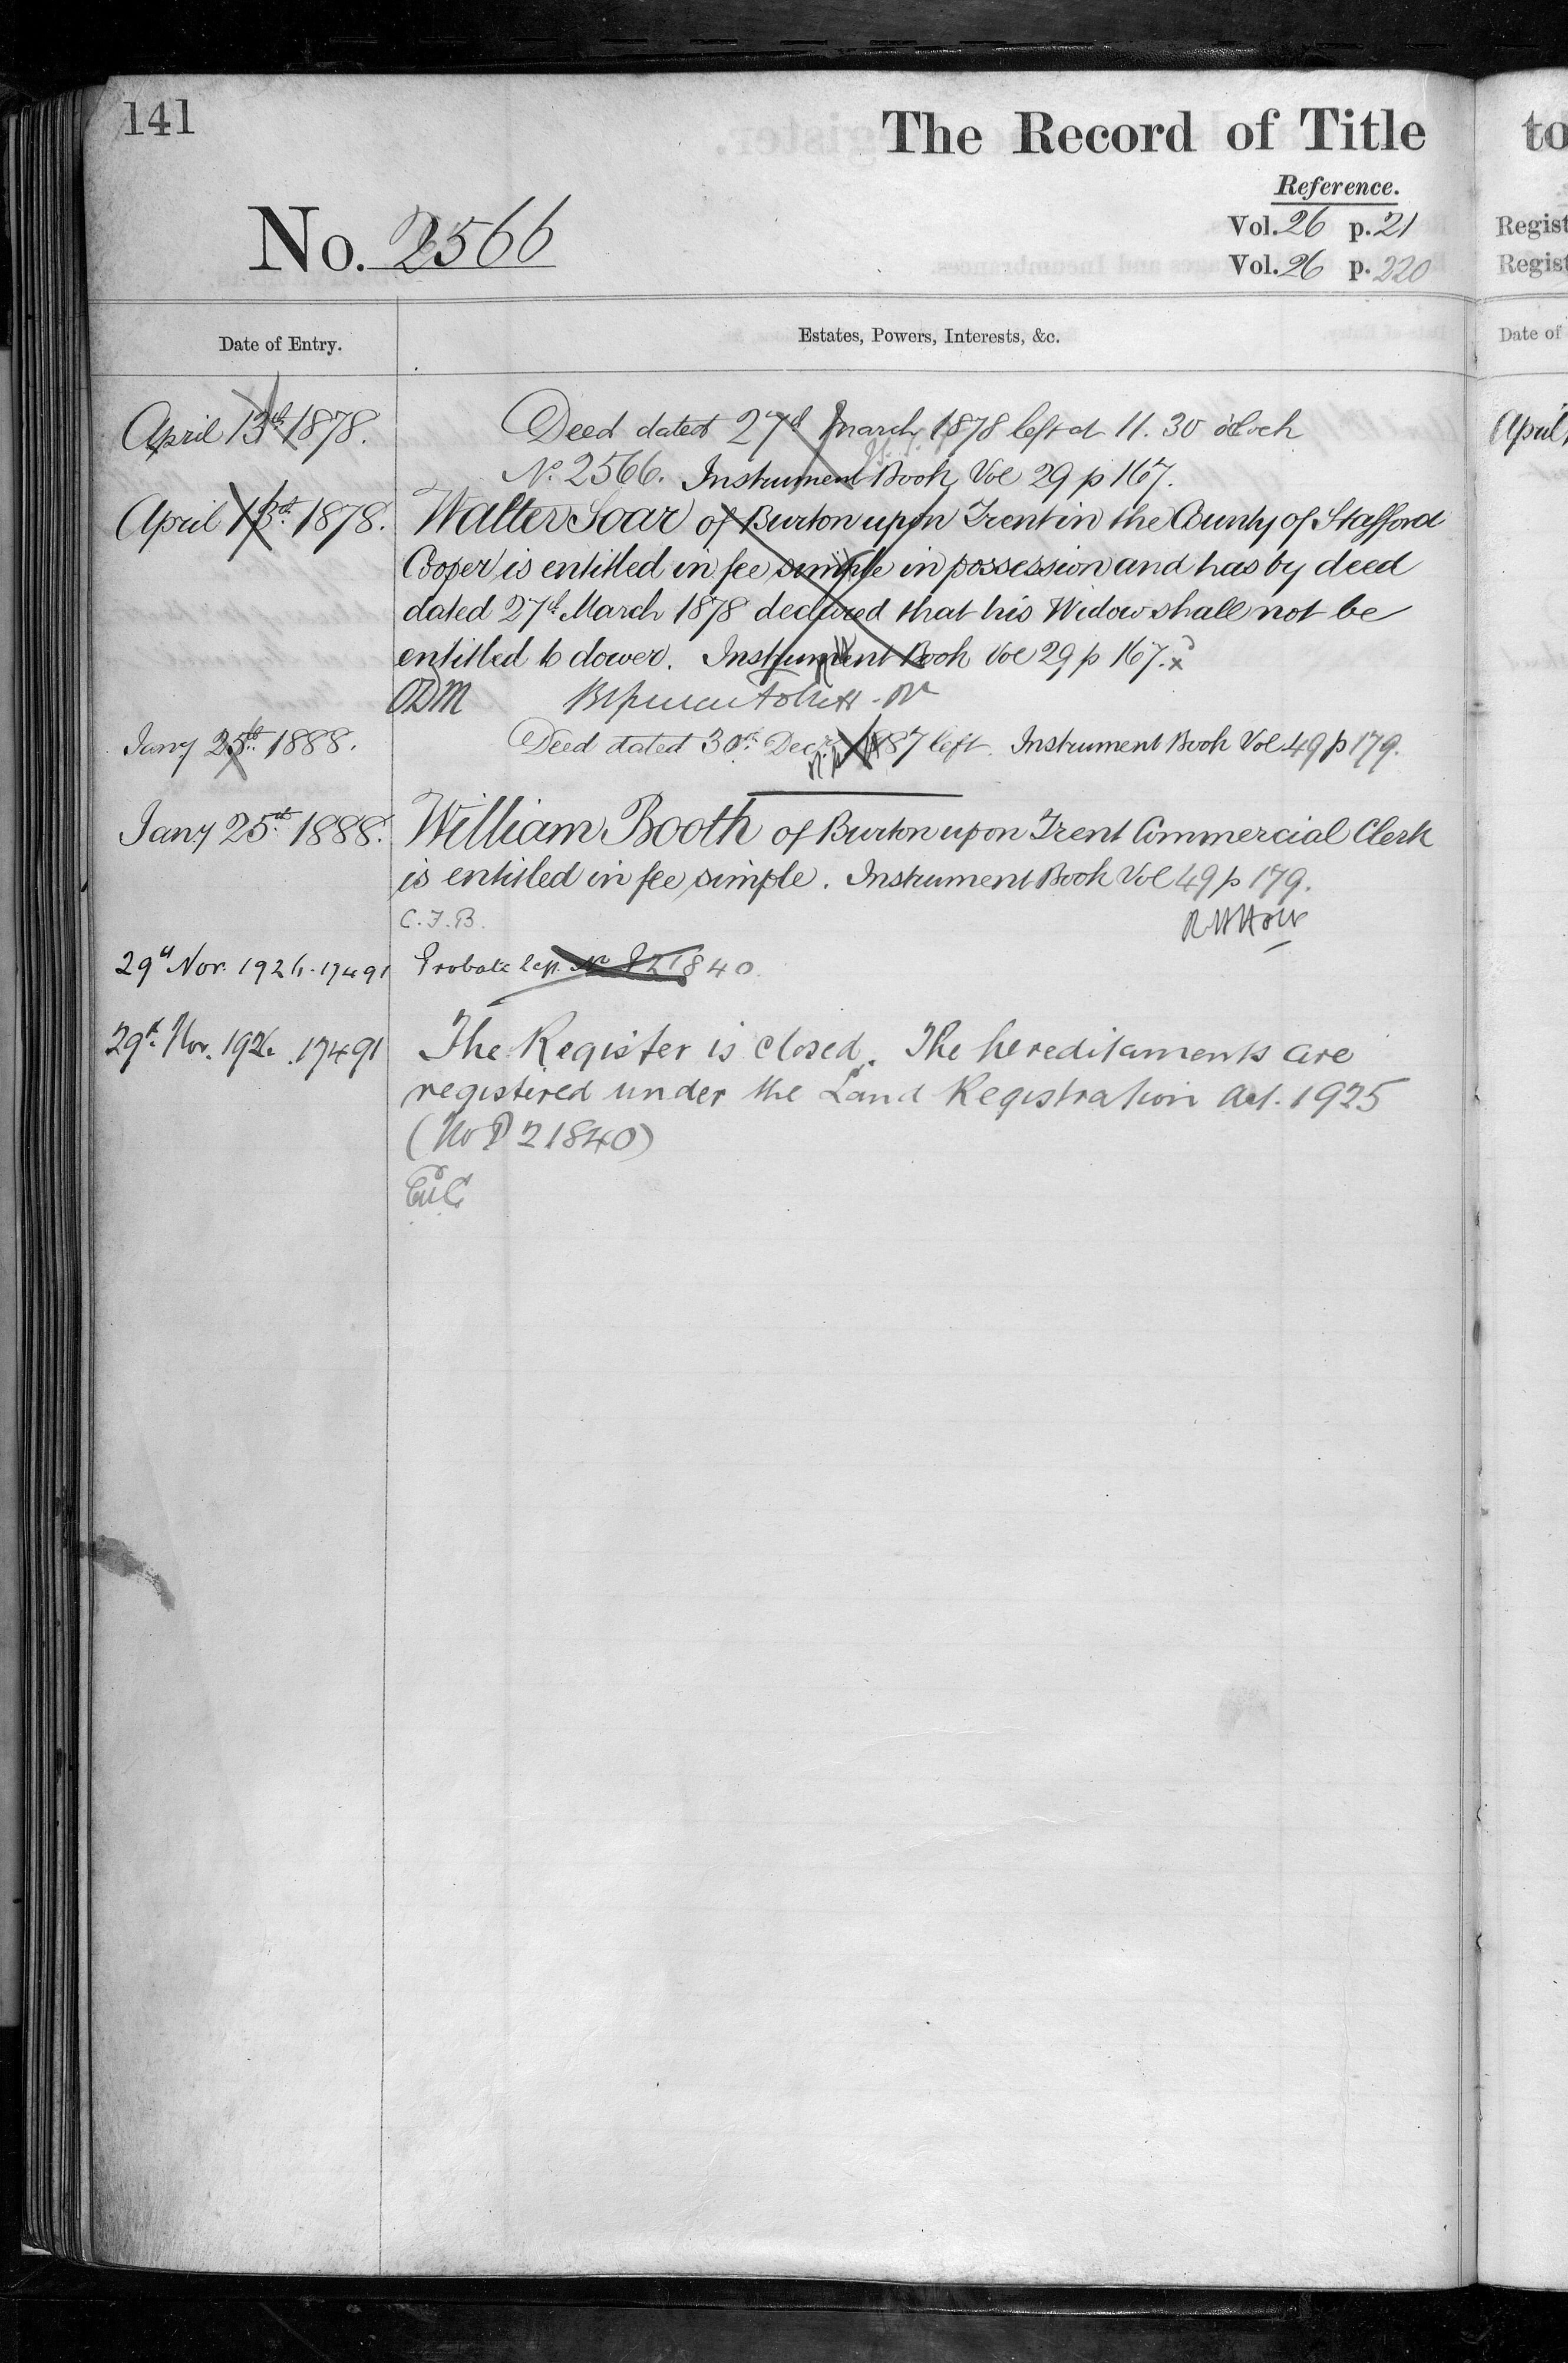 141
The Record of Title
to
Reference.
No. 2566
Vol. 26 p. 21
Vol. 26 p. 220
Regist
Regist
Date of Entry.
Estates, Powers, Interests, &c.
Date of
April 13th 1878.
Deed dated 27th March 1878 left at 11.30 oClock
No. 2566. Instrument Book Vol 29 p 167.
April
April 13th 1878.
Walter Soar of Burton upon Trent in the County of Stafford
Cooper is entitled in fee simple in possession and has by deed
dated 27th March 1878 declared that his Widow shall not be
entitled to dower. Instrument Book Vol 29 p 167.
Jany 25th 1888.
Deed dated 30th Decr. 1887 left. Instrument Book Vol 49 p 179.
Jany 25th 1888.
William Booth of Burton upon Trent Commercial Clerk
is entitled in fee simple. Instrument Book Vol 49 p 179.
29th Nov. 1926. 17491
Probate left. No P 21840.
29th Nov. 1926. 17491
The Register is closed. The hereditaments are
registered under the Land Registration Act. 1925
(No P 21840)